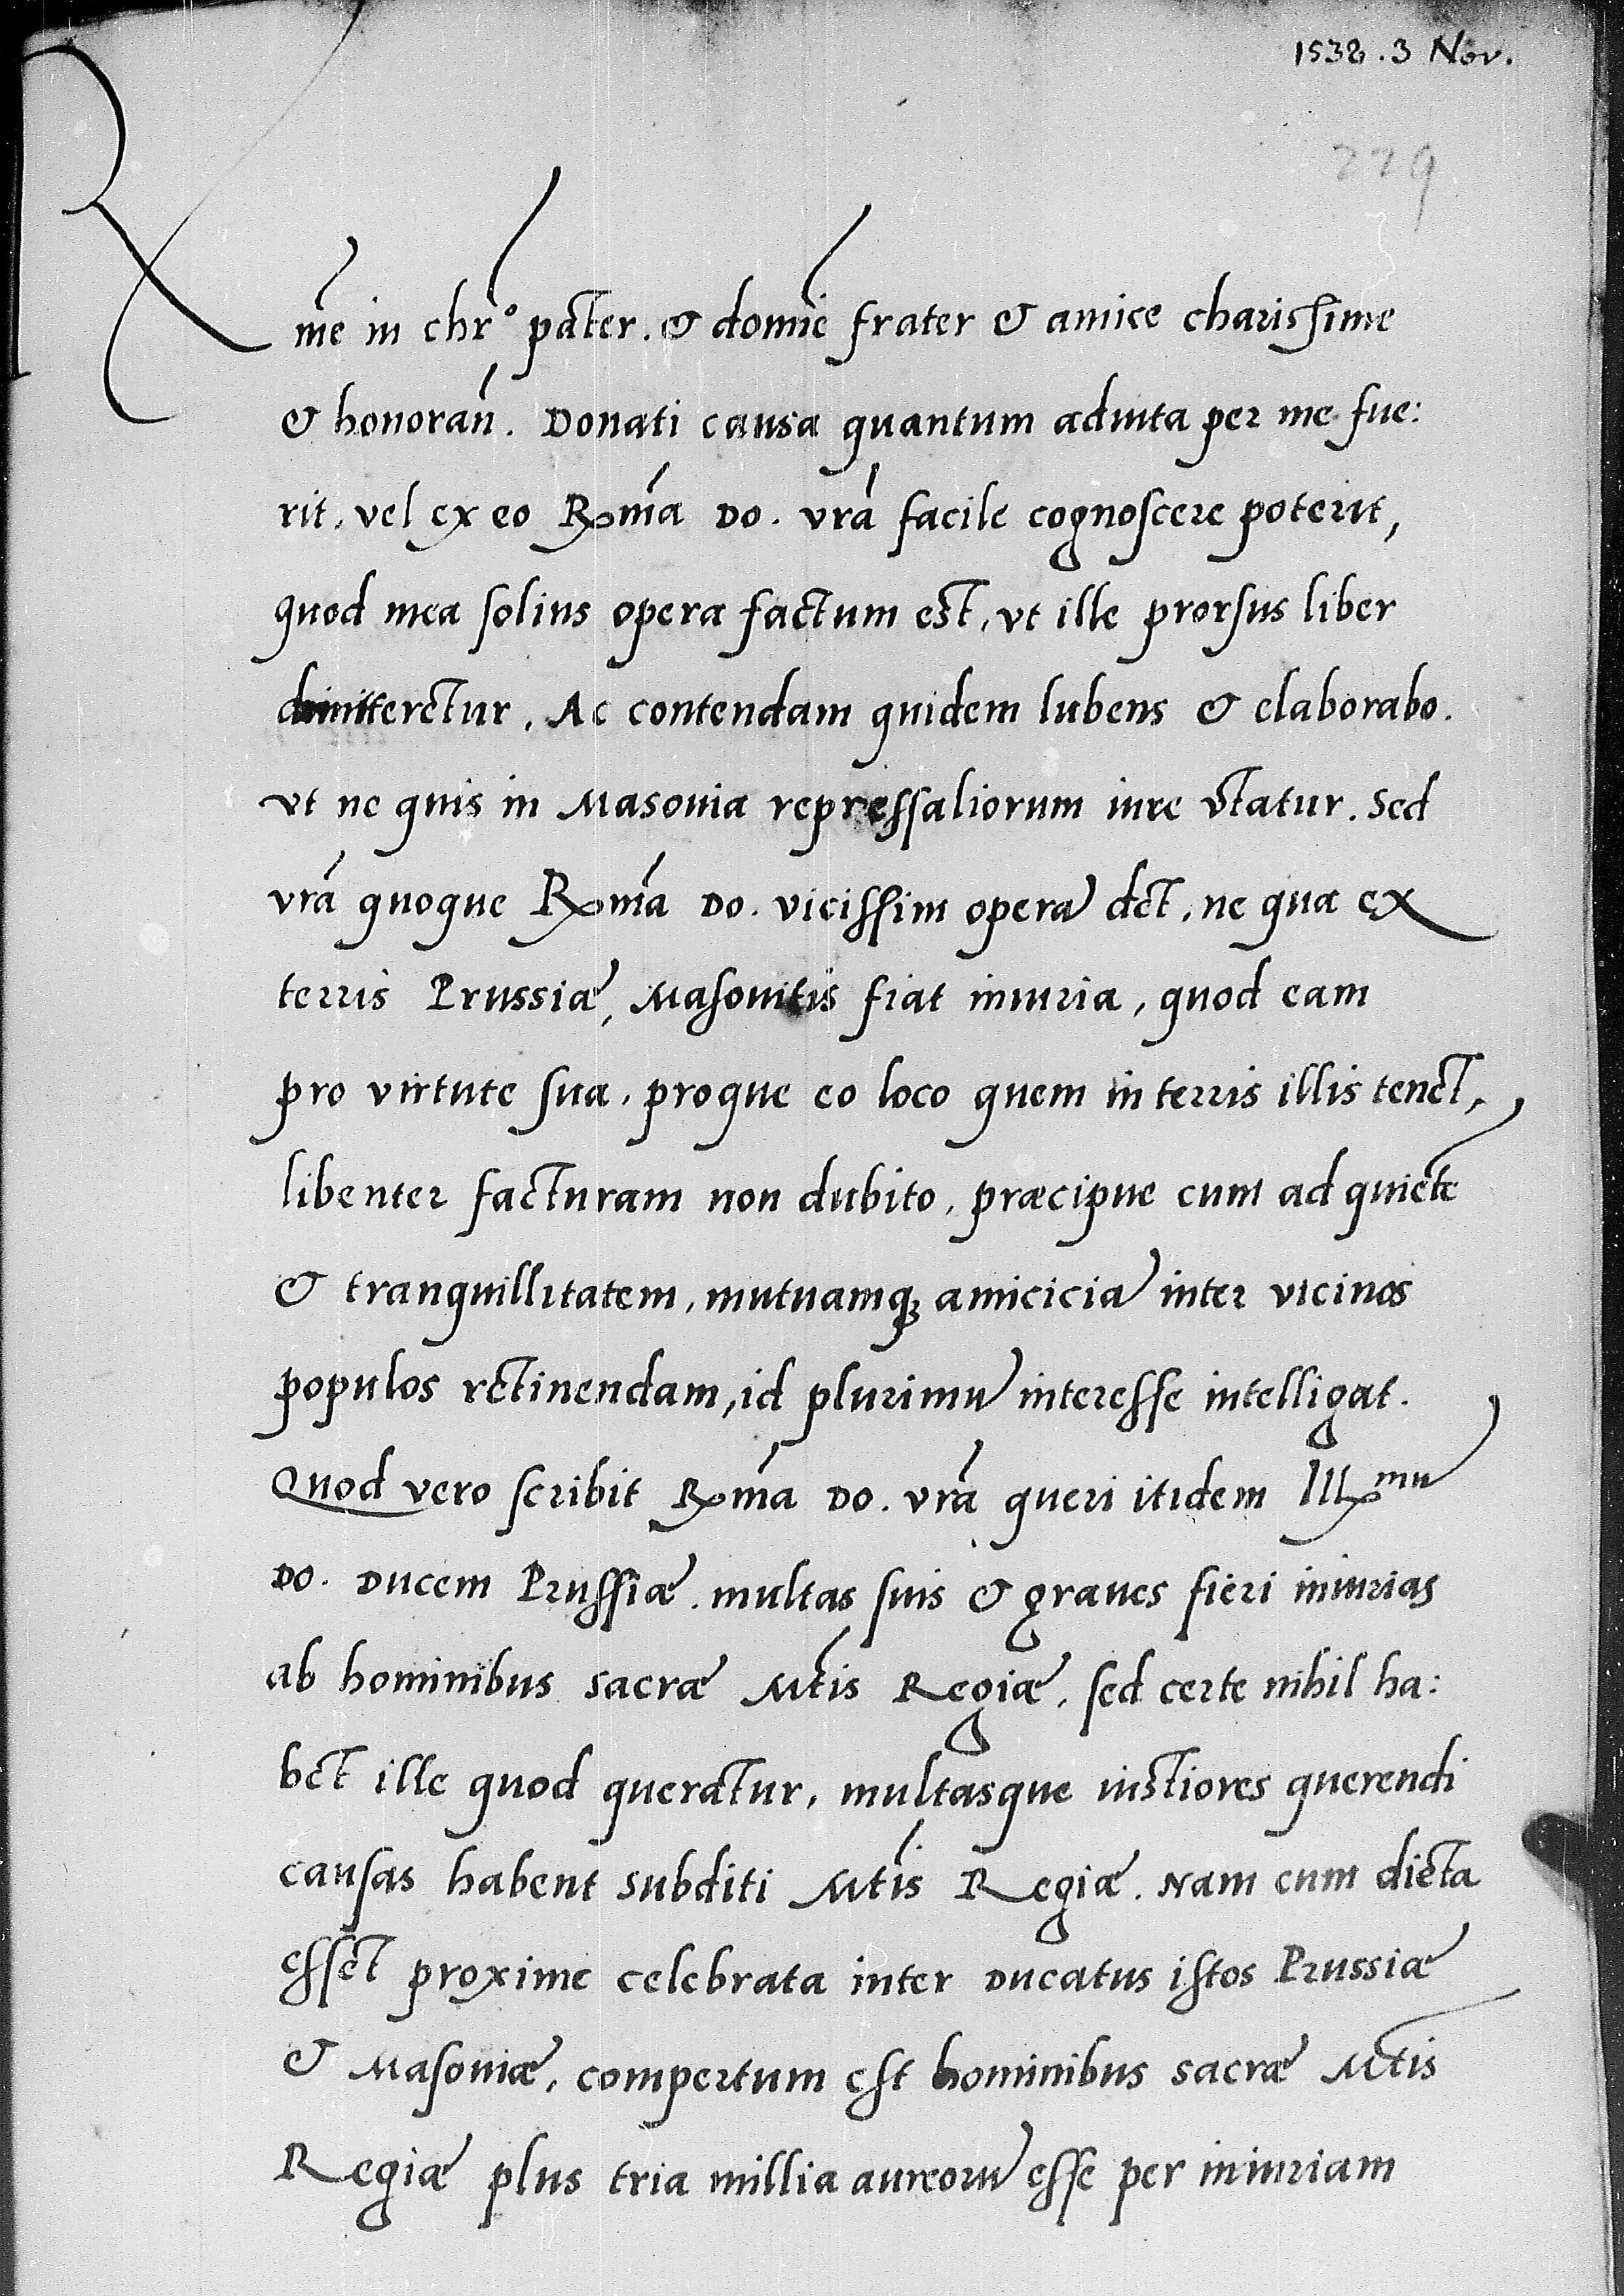 1538 . 3 Nov.
229
Rme in chr° pater. & domie frater & amice charissime
& honoran. Donati causa quantum adiuta per me fue:
rit, vel ex eo Rma Do. vra facile cognoscere poterit,
quod mea solius opera factum est, vt ille prorsus liber
dimitteretur. Ac contendam quidem lubens & elaborabo.
vt ne quis in Masouia repressaliorum iure vtatur. Sed
vra quoque Rma Do. vicissim opera det, ne qua ex
terris Prussiæ, Masouitis fiat iniuria, quod eam
pro virtute sua, proque eo loco quem in terris illis tenet,
libenter facturam non dubito, præcipue cum ad quiete
& tranquillitatem, mutuamq; amicicia inter vicinos
populos retinendam, id plurimu interesse intelligat.
Quod vero scribit Rma Do. vra queri itidem Illmu
Do. Ducem Prussiæ. multas suis & graues fieri iniurias
ab hominibus sacræ Mtis Regiæ, sed certe nihil ha:
bet ille quod queratur, multasque iustiores querendi
causas habent subditi Mtis Regiæ. Nam cum dieta
esset proxime celebrata inter Ducatus istos Prussiæ
& Masouiæ, compertum est hominibus sacræ Mtis
Regiæ plus tria millia aureoru esse per iniuriam